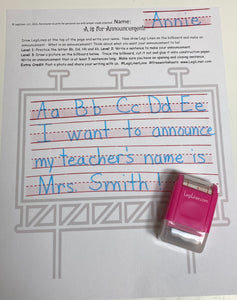 © LegiLiner, LLC, 2020. Permission to print for personal use with proper credit attached.
Name: Annie
A is for Announcement
Draw Legi Lines at the top of the page and write your name. Now draw Legi Lines on the billboard and make an
announcement. What is an announcement? Think about what you want your announcement to be!
Level 1: Practice the letter Aa, Bb, Cc, Dd and Ee. Level 2: Write a sentence to make your announcement.
Level 3: Draw a picture on the billboard below. Trace the billboard, cut it out and glue it onto construction paper.
Write an announcement that is at least 5 sentences long. Make sure you have an opening and closing sentence.
Aa Bb Cc Dd Ee
I want to announce
my teacher's name is
Mrs. Smith!
LegiLiner.com